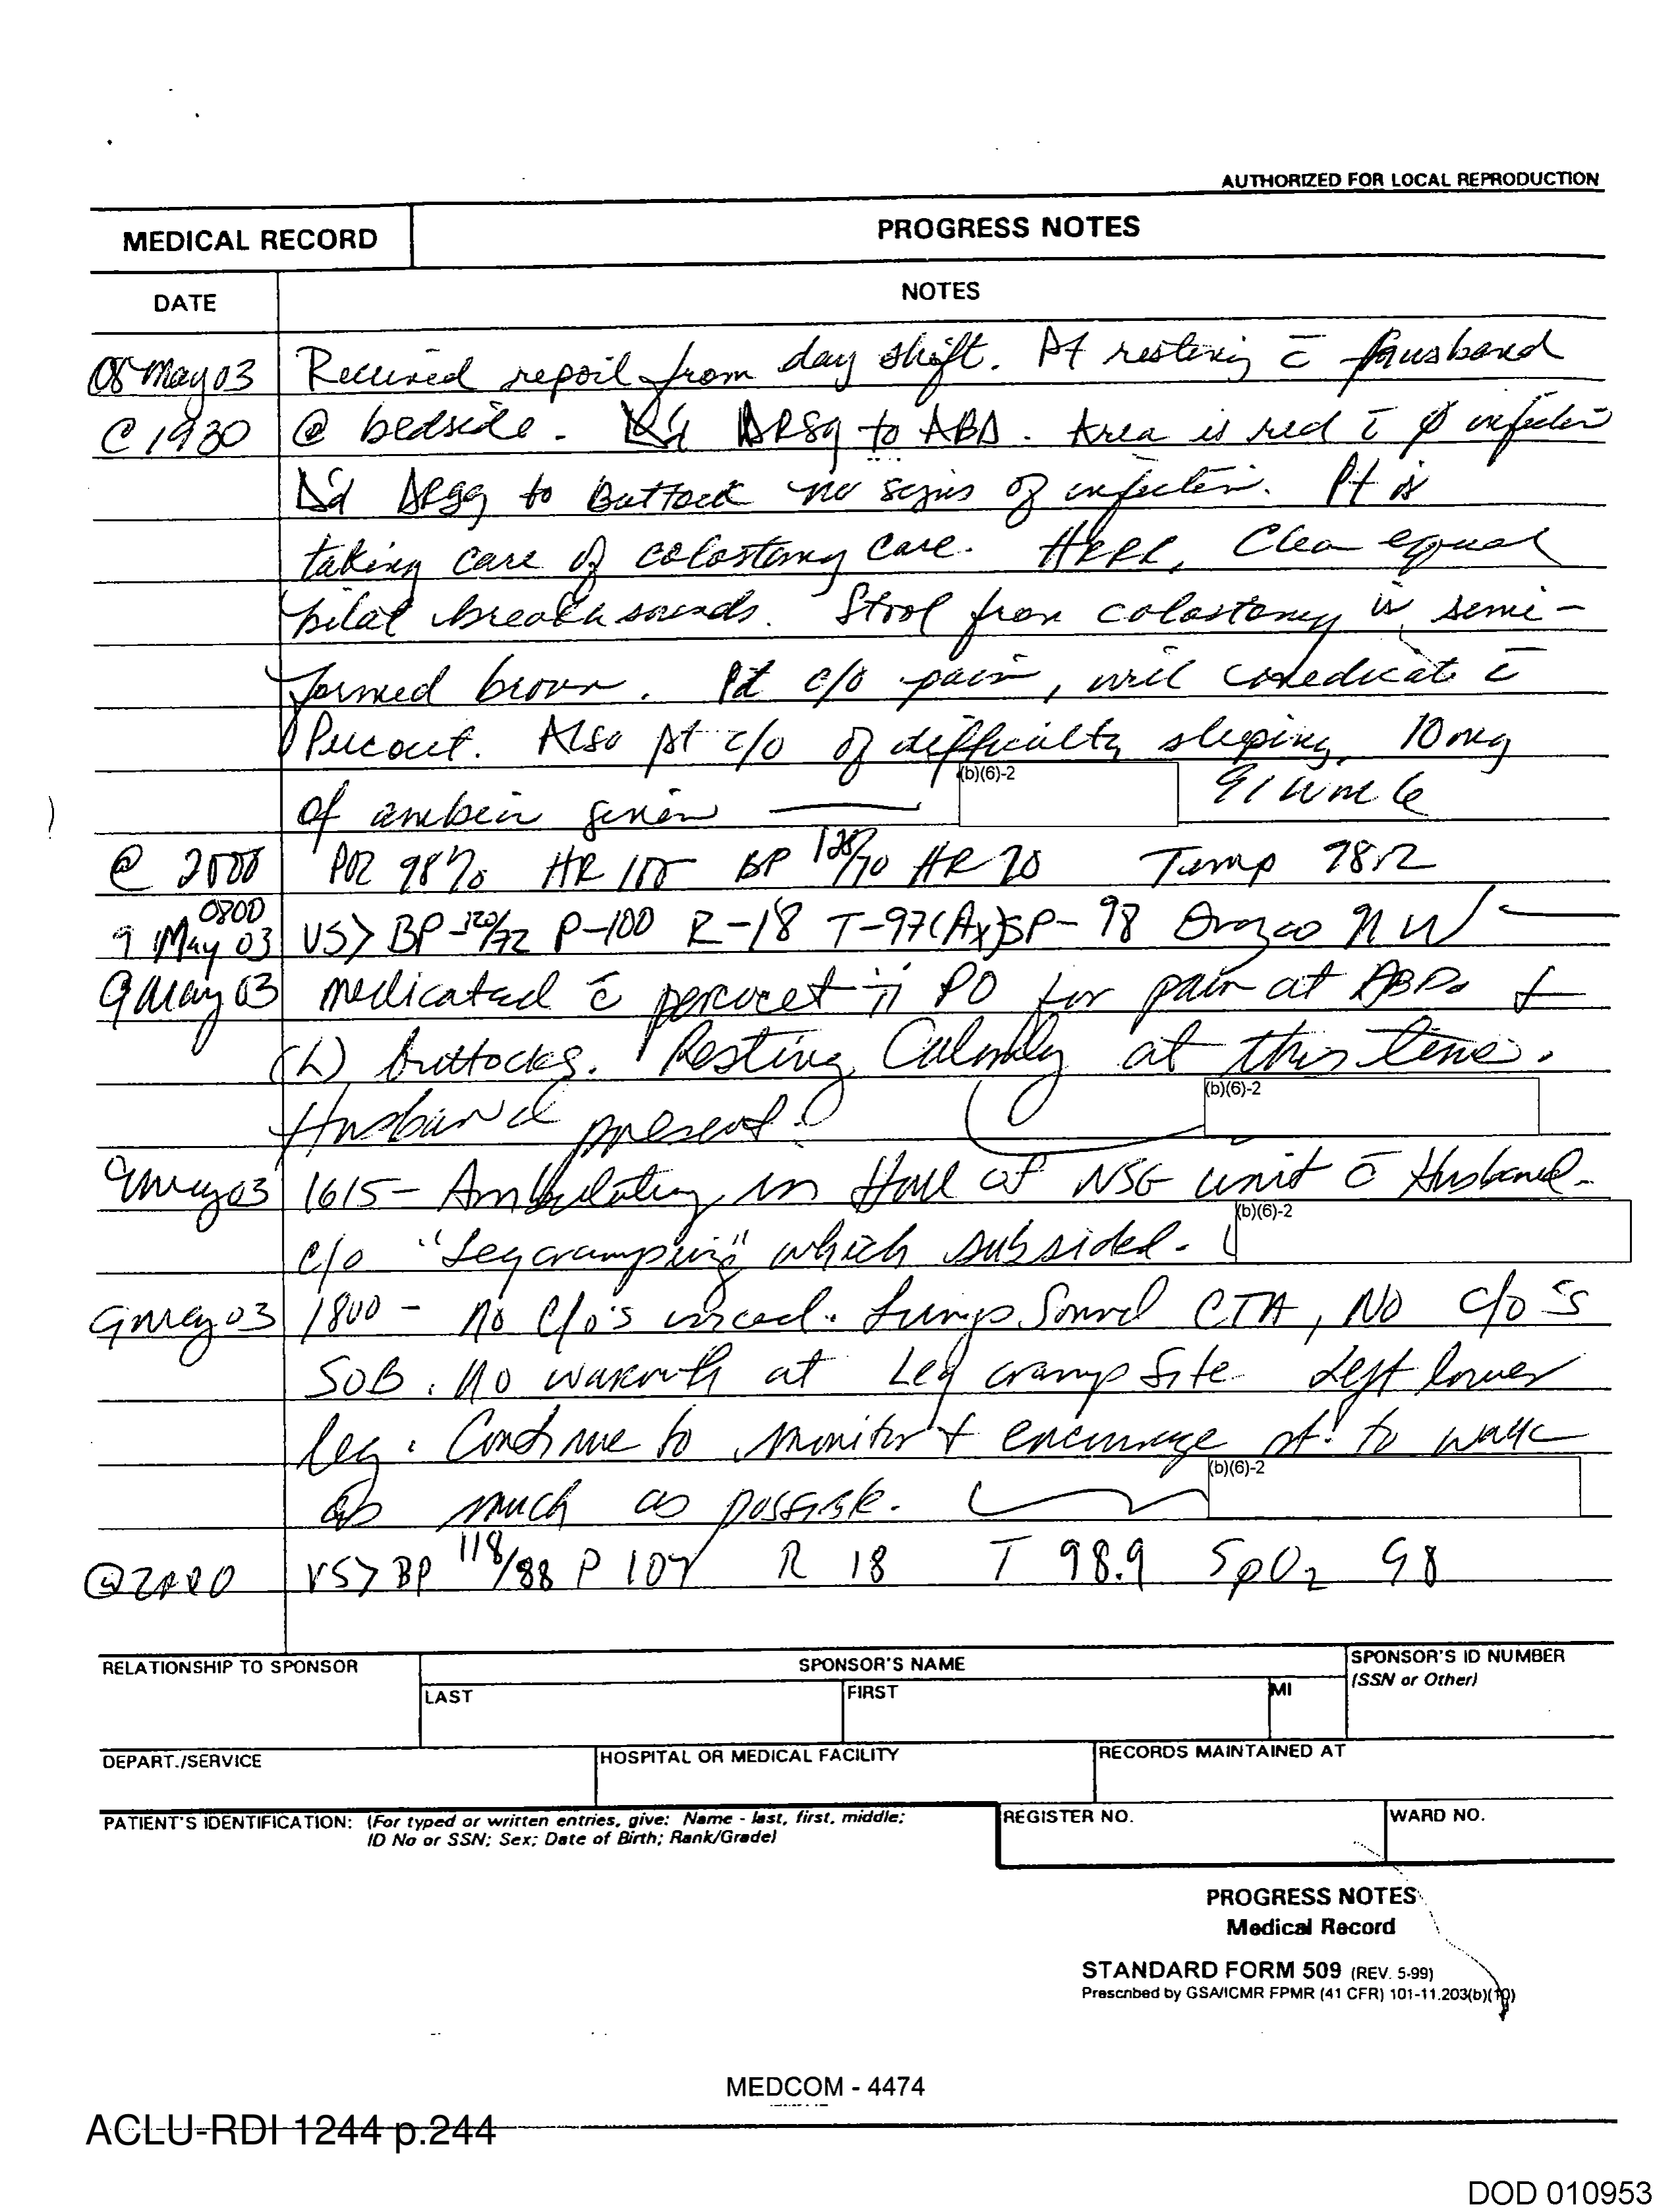 AUTHORIZED FOR LOCAL REPRODUCTION
MEDICAL RECORD
PROGRESS NOTES
DATE
NOTES
08 May 03 Received report from day shift. Pt resting c̄ husband
@ 1930 @ bedside. Δ'd DRSg to ABD. Area is red c̄ ø infection
Δ'd DRSg to Buttock no signs of infection. Pt is
taking care of colostomy care. Clear equal
bilat breath sounds. Stool from colostomy is semi-
formed brown. Pt c/o pain, will medicate c̄
Percocet. Also pt c/o of difficulty sleeping, 10 mg
of ambien given (b)(6)-2 91WM6
@ 2000 PO2 98% HR 100 BP 128/70 HR 20 Temp 98.2
0800
9 May 03 VS> BP-120/72 P-100 R-18 T-97(Ax) SP-98 Orozco 91W
9 May 03 medicated c̄ percocet ii PO for pain at ABD &
(L) buttocks. Resting Calmly at this time.
Husband present. (b)(6)-2
9 May 03 1615- Ambulating in Hall of NSG unit c̄ Husband.
c/o "Leg cramping" which subsided. (b)(6)-2
9 May 03 1800 - No c/o's voiced. Lungs Sound CTA, No c/o's
SOB. No warmth at Leg cramp Site Left lower
leg. Continue to monitor & encourage pt. to walk
as much as possible. (b)(6)-2
VS> BP 118/88 P 107 R 18 T 98.9 SpO2 98
RELATIONSHIP TO SPONSOR
SPONSOR'S NAME
SPONSOR'S ID NUMBER
(SSN or Other)
LAST
FIRST
MI
DEPART./SERVICE
HOSPITAL OR MEDICAL FACILITY
RECORDS MAINTAINED AT
PATIENT'S IDENTIFICATION: (For typed or written entries, give: Name - last, first, middle;
ID No or SSN; Sex; Date of Birth; Rank/Grade)
REGISTER NO.
WARD NO.
PROGRESS NOTES
Medical Record
STANDARD FORM 509 (REV. 5-99)
Prescribed by GSA/ICMR FPMR (41 CFR) 101-11.203(b)(10)
MEDCOM - 4474
ACLU-RDI 1244 p.244
DOD 010953